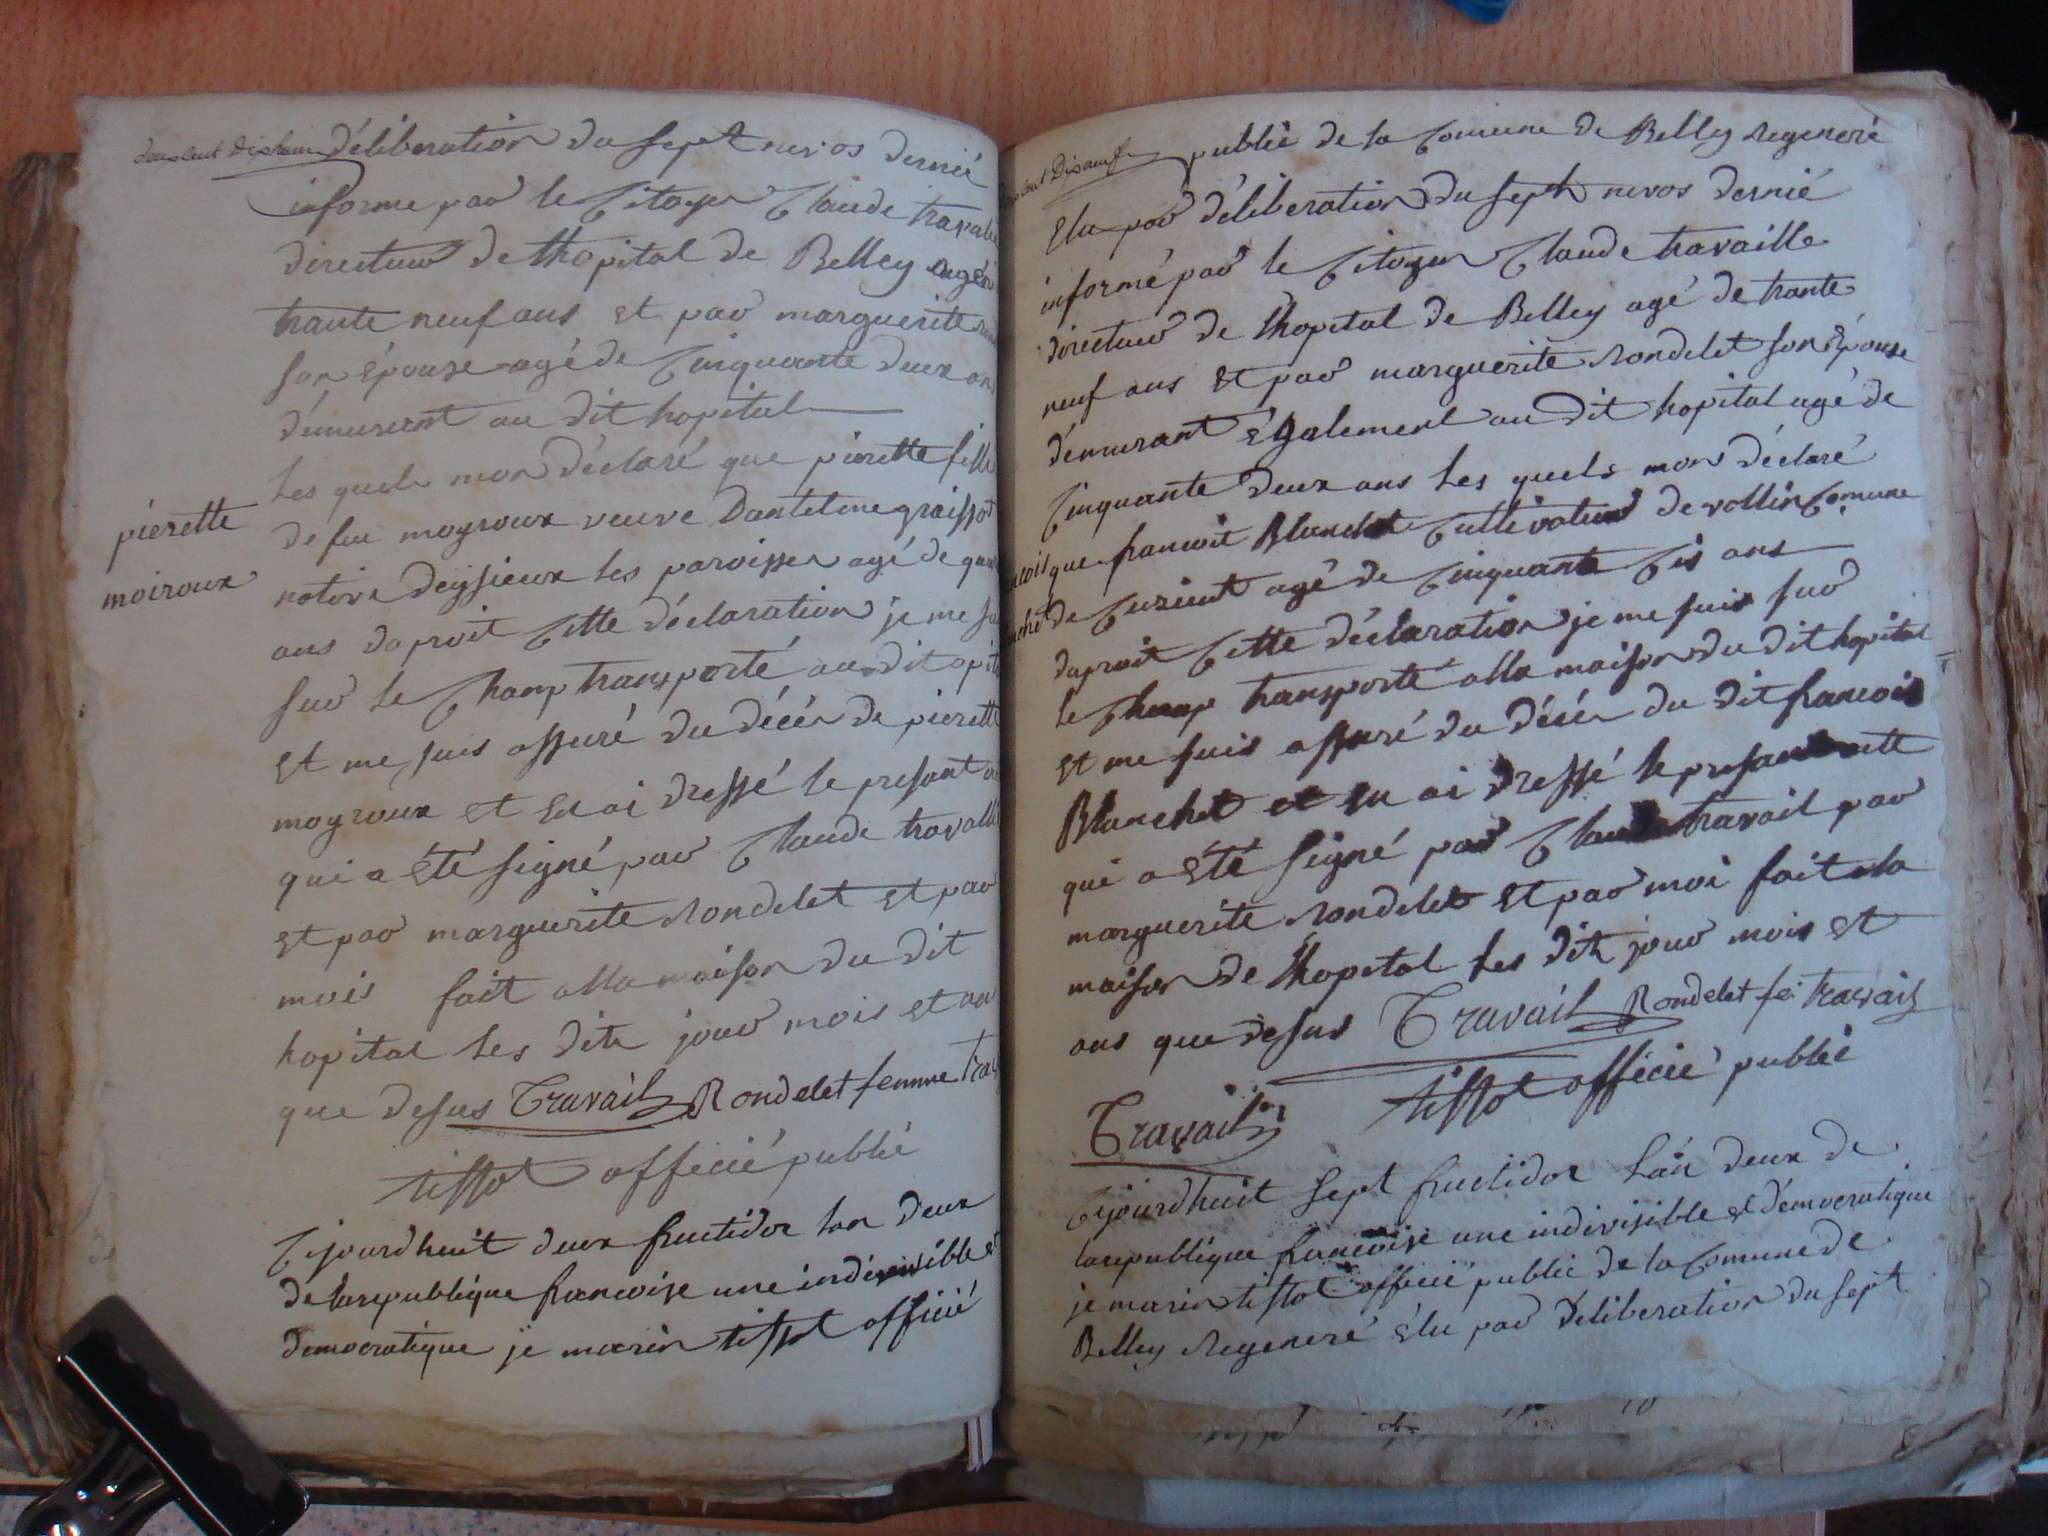 deux Cent Dixhuit
déliberation du sept nivos dernié
informe par le Citoyen Claude travaille
directeur de thopital de Belley agé
trante neuf ans et par marguerite
son épouse agé de Cinquante deux ans
démurent au dit hopital
les quels mon déclaré que pierette fille
de feu moyroux veuve Dantelme graissot
notére deyzieux les paroisses agé de
ans daproit Cette déclaration je me sui
sur le Champ transporté au dit opital
et me suis assuré du décés de pierette
moyroux et en ai dressé le presant
qui a été signé par Claude travaille
et par marguerite Rondelet et par
mois fait alla maison du dit
hopital les dits jour mois et an
que desus Travail Rondelet femme Travail
tissot officié publié
Cejourdhuit deux fructidor lan deux
de larepublique francoise une indivisible et
democratique je marin tissot officié
pierette
moiroux
Cent Dixneuf
publié de la Comune de Belley regeneré
élu par déliberation du sept nivos dernié
informé par le Citoyen Claude travaille
directeur de lhopital de Belley agé de trante
neuf ans et par marguerite Rondelet son épouse
démurant également au dit hopital agé de
Cinquante deux ans les quels mon déclaré
que francoit Blanchet Cultivateur de rollin Comune
de Cuzieut agé de Cinquante Sis ans
daproit Cette déclaration je me suis sur
le Champ transporté alla maison du dit hopital
et me suis assuré du désés du dit francois
Blanchet et en ai dressé le presant
qui a été signé par Claude travail par
marguerite Rondelet et par moi fait alla
maison de lhopital les dits jour mois et
ans que desus Travail Rondelet fe travail
tissot officié publié
Travail
Cejourdhuit sept fructidor lan deux de
larepublique francoise une indivisible et démocratique
je marin tissot officié public de la Commune de
Belley regeneré élu par déliberation du sept